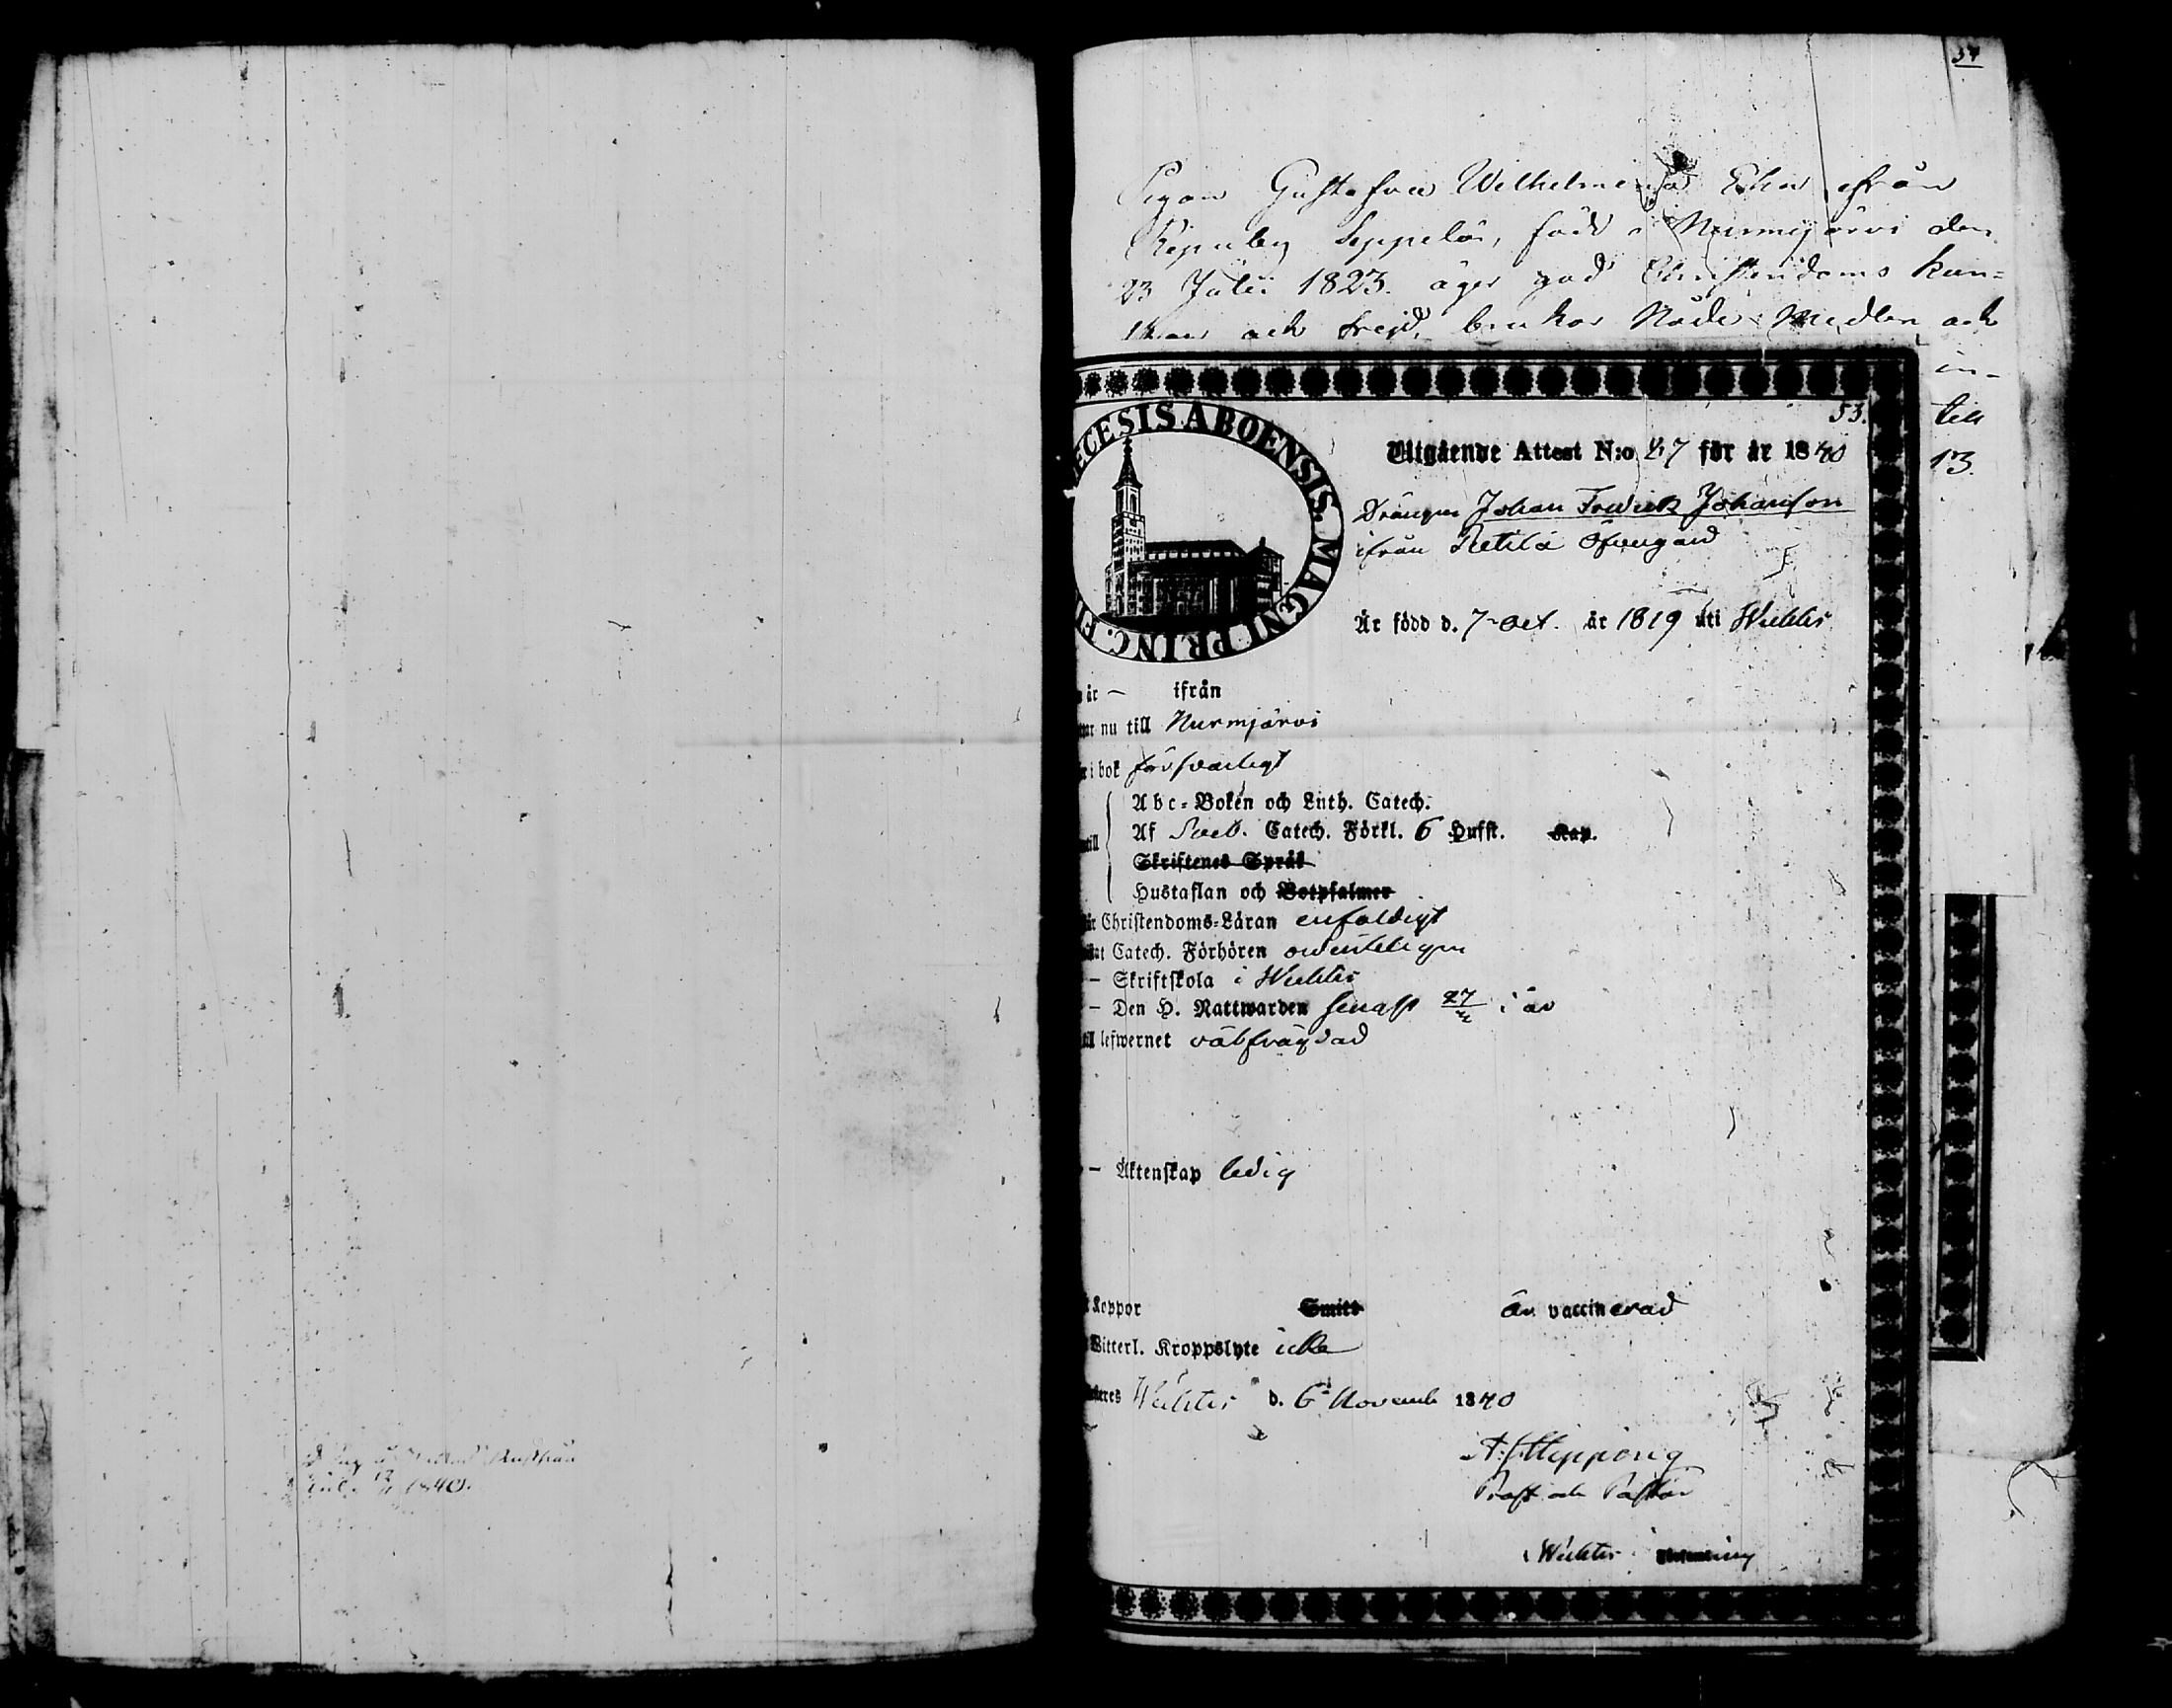 54
Pigan Gustafva Wilhelmina Ekar ifrån
Seppelä, född i Nurmijärvi den
23 Julii 1823. äger god Christendoms kun-
skap och frejd, brukar Nåde Medlen och
in-
till
13.
53.
DIŒCESIS ABOENSIS. MAGNI PRINC. FI
Utgående Attest N:o 87 för år 1840
Drängen Johan Fredrik Johansson
ifrån Retilä Öfvergård
Är född d. 7 Oct. år 1819 uti Wichtis
år — ifrån
nu till Nurmjärvi
i bok försvarligt
Abc-Boken och Luth. Catech.
till Af Sveb. Catech. Förkl. 6 Hufst. Kap.
Skriftenes Språk
Hustaflan och Botpsalmer
Christendoms-Läran enfaldigt
Catech. Förhören ordentligen
— Skriftskola i Wichtis
— Den H. Nattwarden senast 27 i år
till lefwernet välfrägdad
— Äktenskap ledig
Koppor Smitt är vaccinerad
Witterl. Kroppslyte icke
Wichtis d. 6 Novemb 1840
Prost och Pastor
i Wichtis
1840.